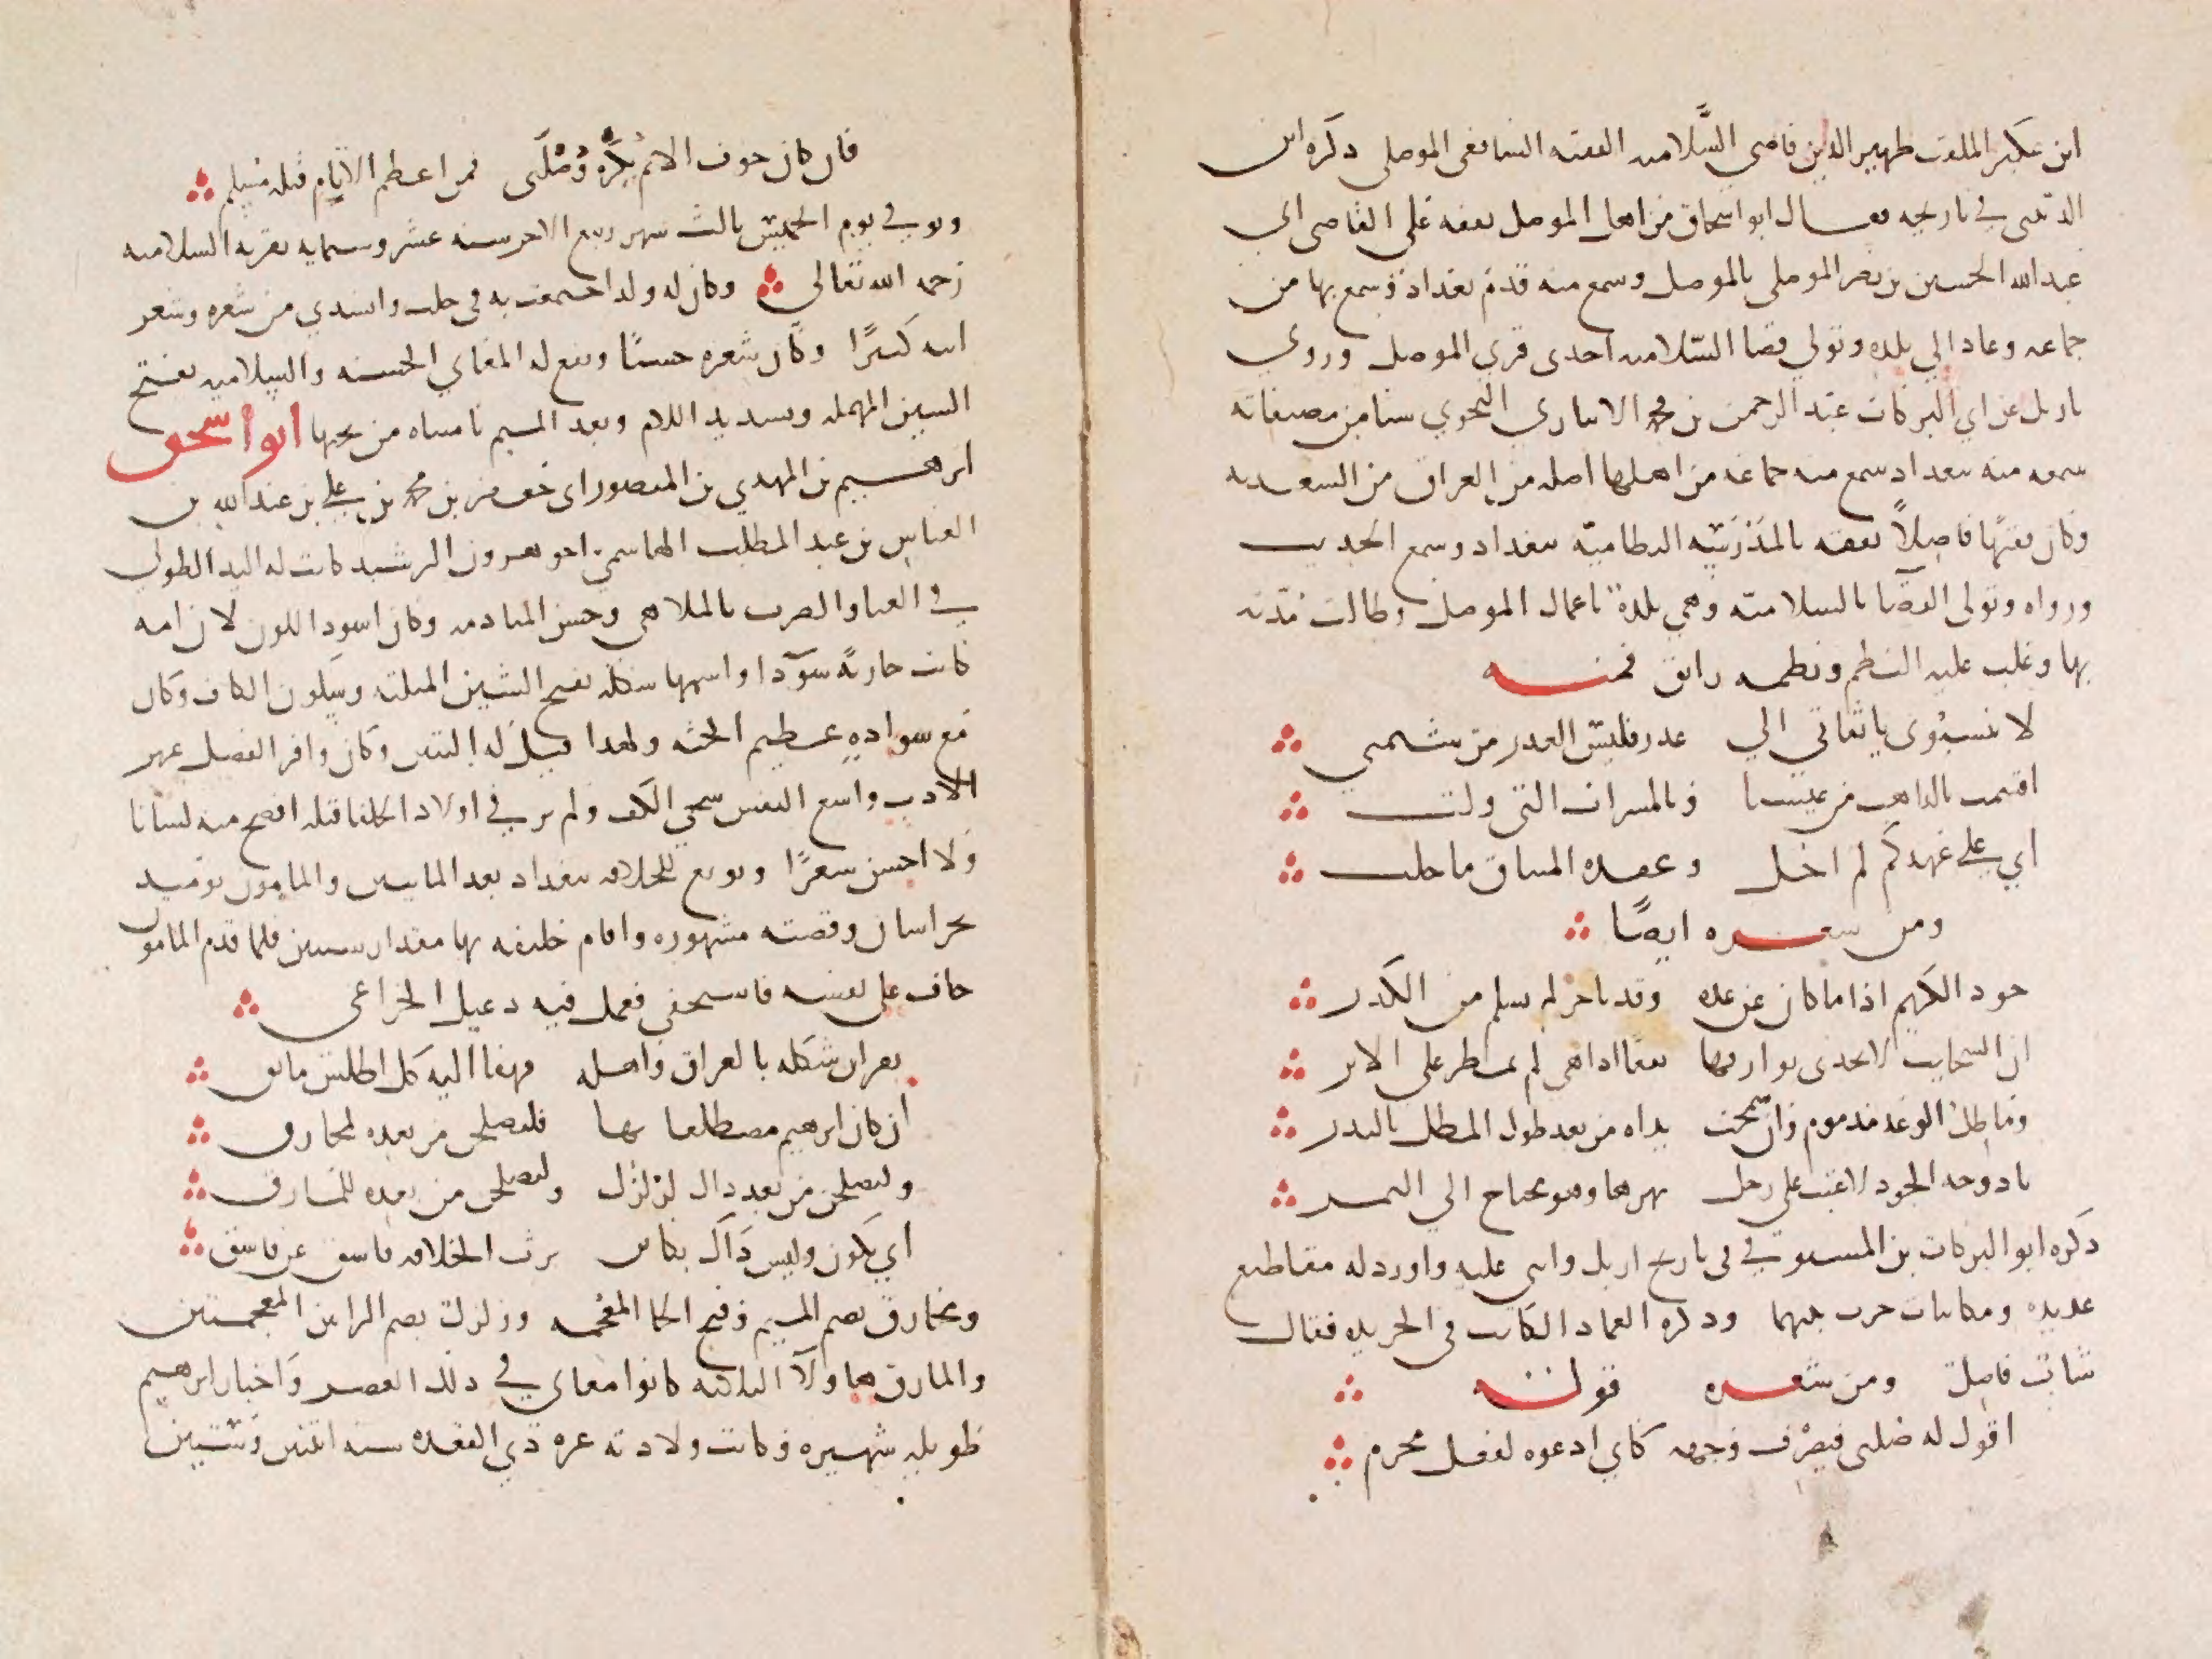 ابن عسكر الملقب ظهير الدين قاضي السَّلامية الفقيه الشافعي الموصلي ذكره ابن
الدبيثي في تاريخه فقال ابو اسحاق من اهل الموصل تفقه على القاضي ابي
عبد الله الحسين بن نصر الموصلي بالموصل وسمع منه قدم بغداد وسمع بها من
جماعة وعاد الي بلده وتولي قضا السّلامية احدى قري الموصل وروي
باربل عن ابي البركات عبد الرحمن بن محمد الانباري النحوي شيا من مصنفاته
سمعه منه ببغداد سمع منه جماعة من اهلها اصله من العراق من السعدية
وكان فقيهًا فاضلاً تفقه بالمدرسة النظامية ببغداد وسمع الحديث
ورواه وتولى القضا بالسلامية وهي بلدة باعمال الموصل وطالت مدته
بها وغلب عليه النظم ونظمه رائق فمنه
لا تنسبوني يا ثقاتي الي غدر فليس الغدر من شيمتي
اقسمت بالذاهب من عيشنا وبالمسرات التي ولت
اني على عهدكم لم احل وعقدة الميثاق ما حلت
ومن شعره ايضًا
جود الكريم اذا ما كان عن عده وقد تاخر لم يسلم من الكدر
ان السحايب لا تجدي بوارقها نفعا اذا هي لم تمطر على الاثر
وماطل الوعد مذموم وان سمحت يداه من بعد طول المطل بالبدر
يا دوحة الجود لا عتب على رجل يهزها وهو محتاج الي الثمر
ذكره ابو البركات بن المستوفي في تاريخ اربل واثنى عليه واورد له مقاطيع
عديدة ومكاتبات جرت بينهما وذكره العماد الكاتب في الخريدة فقال
شاب فاضل ومن شعره قوله
اقول له صلني فيصرف وجهه كاني ادعوه لفعل محرم
فان كان خوف الاثم يكره وُصْلَتى فمن اعظم الاثام قتلة مسلم
وتوفي يوم الخميس ثالث شهر ربيع الاخر سنة عشر وستماية بقرية السلامية
رحمه الله تعالى وكان له ولد اجتمعت به في حلب وانشدني من شعره وشعر
ابيه كثيرًا وكان شعره حسنًا ويقع له المعاني الحسنة والسلامية بفتح
السين المهملة وتشديد اللام وبعد الميم يا مثناة من تحتها ابو اسحق
ابرهيم بن المهدي بن المنصور ابي جعفر بن محمد بن علي بن عبد الله بن
العباس بن عبد المطلب الهاشمي اخو هرون الرشيد كانت له اليد الطولى
في الغنا والضرب بالملاهي وحسن المنادمة وكان اسود اللون لان امه
كانت جارية سودا واسمها شكلة بفتح الشين المثلثة وسكون الكاف وكان
مع سواده عظيم الجثة ولهذا قيل له التنين وكان وافر الفضل غزير
الادب واسع النفس سخي الكف ولم ير في اولاد الخلفا قبله افصح منه لسانا
ولا احسن شعرًا وبويع للخلافة ببغداد بعد المايتين والمامون يوميد
بخراسان وقصته مشهورة واقام خليفة بها مقدار سنتين فلما قدم المامون
خاف على نفسه فاستخفى فعمل فيه دعبل الخزاعي
نعر ابن شكلة بالعراق واهله فهفا اليه كل اطلس مايق
ان كان ابرهيم مضطلعا بها فلتصلحن من بعده لمخارق
ولتصلحن من بعد ذاك لزلزل ولتصلحن من بعده للمارق
اني يكون وليس ذاك بكاين يرث الخلافة فاسق عن فاسق
ومخارق بضم الميم وفتح الخا المعجمة وزلزل بضم الزاين المعجمتين
والمارق هاولآ الثلاثة كانوا مغاني في ذلك العصر واخبار ابرهيم
طويلة شهيرة وكانت ولادته غرة ذي القعدة سنة اثنين وستين